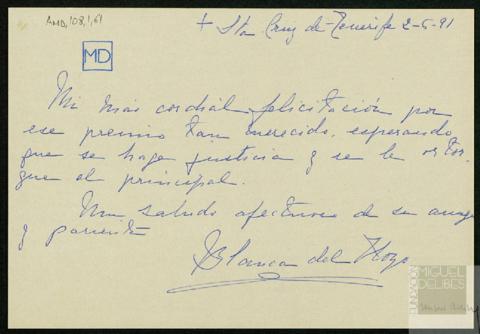 AMD,108,1,61
+ Sta Cruz de-Tenerife 2-5-91
MD
Mi más cordial felicitación por
ese premio tan merecido, esperando
que se haga justicia y se le otor-
gue el principal.
Un saludo afectuoso de su amiga
y pariente
Blanca del Hoyo
FUNDACIÓN
MIGUEL
DELIBES